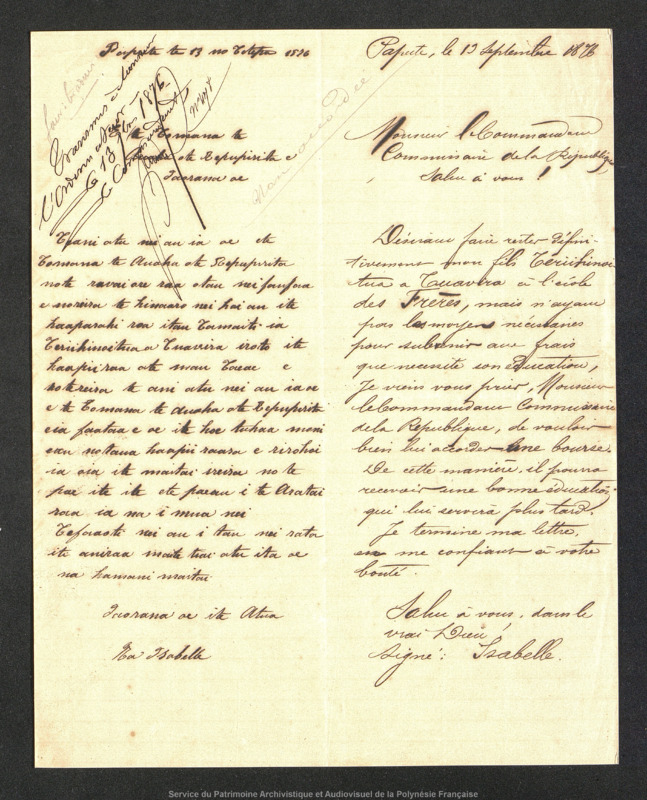 Papeete te 13 no Tetepa 1876
Transmis à Monsieur
l'Ordonnateur
le 13 7bre 1876
Non accordée
te Tomana te
o te Repupirita e
Iaorana oe
Te ani atu nei au ia oe e te
Tomana te Auaha o te Repupirita
no te ravai ore raa o tau nei faufaa
e no reira te hinaaro nei hoi au i te
haaparahi raa i tau Tamaiti ia
Teriihinoitua a Tuavira i roto i te
haapii raa a te mau Taeae e
no te reira te ani atu nei au ia oe
e te Tomana te Auaha o te Repupirita
eia faataa e oe i te hoe tuhaa moni
ei no tana haapii raa e riro hoi
ia oia i te maitai i reira no te
pae i te
raa ia na i mua nei
Te faaoti nei au i tau nei rata
i te aniraa maite tia atu ita oe
na hamani maitai
Iaorana oe i te Atua
Na Isabelle
Papeete, le 13 Septembre 1876
Monsieur le Commandant
Commissaire de la République
Salut à vous !
Désirant faire rester défini-
tivement mon fils Teriihinoi-
tua a Tuavira à l'école
des Frères, mais n'ayant
pas les moyens nécessaires
pour subvenir aux frais
que necessite son éducation,
Je viens vous prier, Monsieur
le Commandant Commissaire
de la République, de vouloir
bien lui accorder une bourse.
De cette manière, il pourra
recevoir une bonne éducation
qui lui servira plus tard.
Je termine ma lettre,
en me confiant à votre
bonté.
Salut à vous, dans le
vrai Dieu
Signé : Isabelle.
Service du Patrimoine Archivistique et Audiovisuel de la Polynésie Française